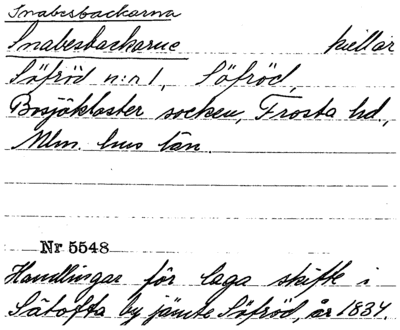 Snabesbackarna
Snabesbackarne kullar
Söfröd n:r 1, Söfröd,
Bosjökloster socken, Frosta hd.,
Mlm. hus län.
Nr 5548
Handlingar för laga skifte i
Sätofta by jämte Söfröd, år 1837.